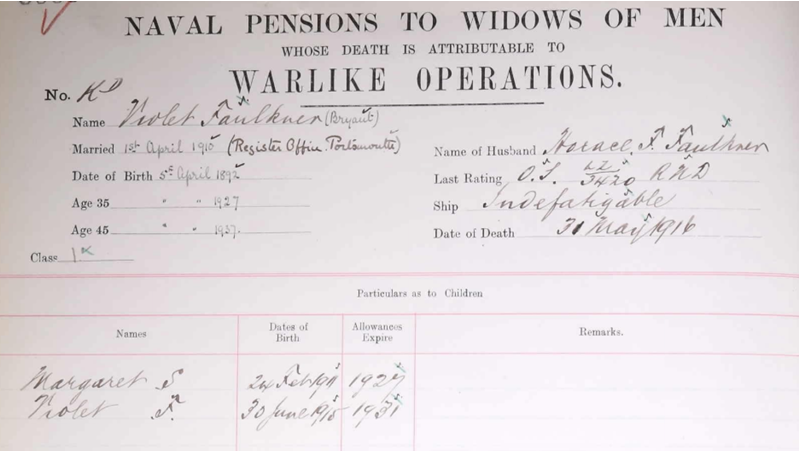 NAVAL PENSIONS TO WIDOWS OF MEN
WHOSE DEATH IS ATTRIBUTABLE TO
WARLIKE OPERATIONS.
No.
Name Violet Faulkner (Bryant)
Married 1st April 1910 (Register Office Portsmouth)
Date of Birth 5th April 1892
Age 35 " " 1927
Age 45 " " 1937.
Class 1
Name of Husband Horace F. Faulkner
Last Rating O.S. 3420
Ship Indefatigable
Date of Death 31 May 1916
Particulars as to Children
Names Dates of Birth Allowances Expire Remarks.
Margaret S 24 Feb 1911 1927
Violet F. 30 June 1915 1931